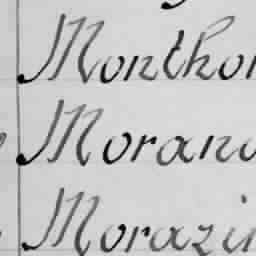 Monthon
Morand
Morazin